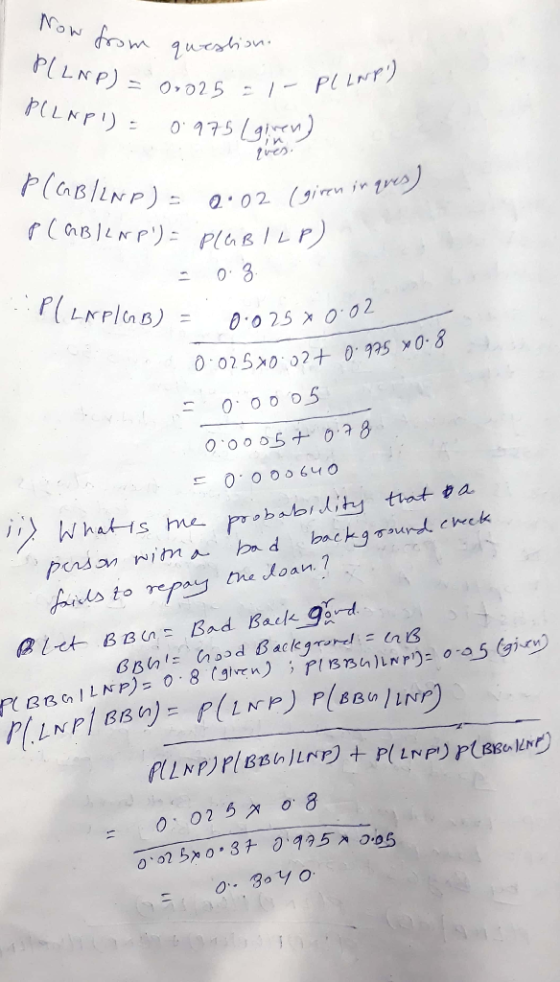 Now from question.
P(LNP) = 0.025 = 1 - P(LNP')
P(LNP') = 0.975 (given in ques.)
P(GB/LNP) = 0.02 (given in ques)
P(GB|LNP') = P(GB|LP)
= 0.8
∴ P(LNP/GB) = 0.025 x 0.02
0.025x0.02 + 0.975 x0.8
= 0.0005
0.0005 + 0.78
= 0.000640
ii) What is the probability that a
person with a bad background check
fails to repay the loan?
Let BBG = Bad Back gord.
BBG' = Good Background = GB
P(BBG|LNP) = 0.8 (given) ; P(BBG|LNP') = 0.05 (given)
P(LNP/BBG) = P(LNP) P(BBG/LNP)
P(LNP)P(BBG|LNP) + P(LNP') P(BBG|LNP')
= 0.025 x 0.8
0.025x0.8+ 0.975 x 0.05
= 0.3040